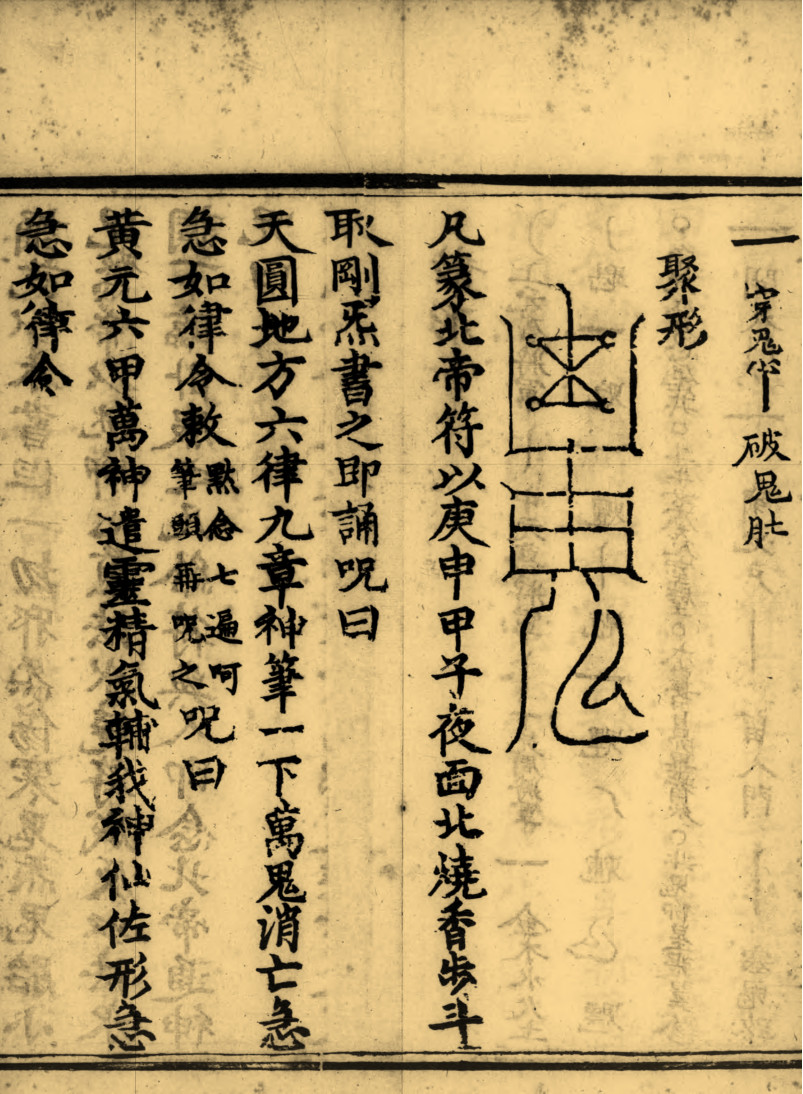 一 穿鬼心 破鬼肚
聚形
凡篆北帝符以庚申甲子夜面北燒香步斗
取剛炁書之即誦呪曰
天圓地方六律九章神筆一下萬鬼消亡急
急如律令敕默念七遍呵筆頭再呪之呪曰
黃元六甲萬神遣靈精氣輔我神仙佐形急
急如律令